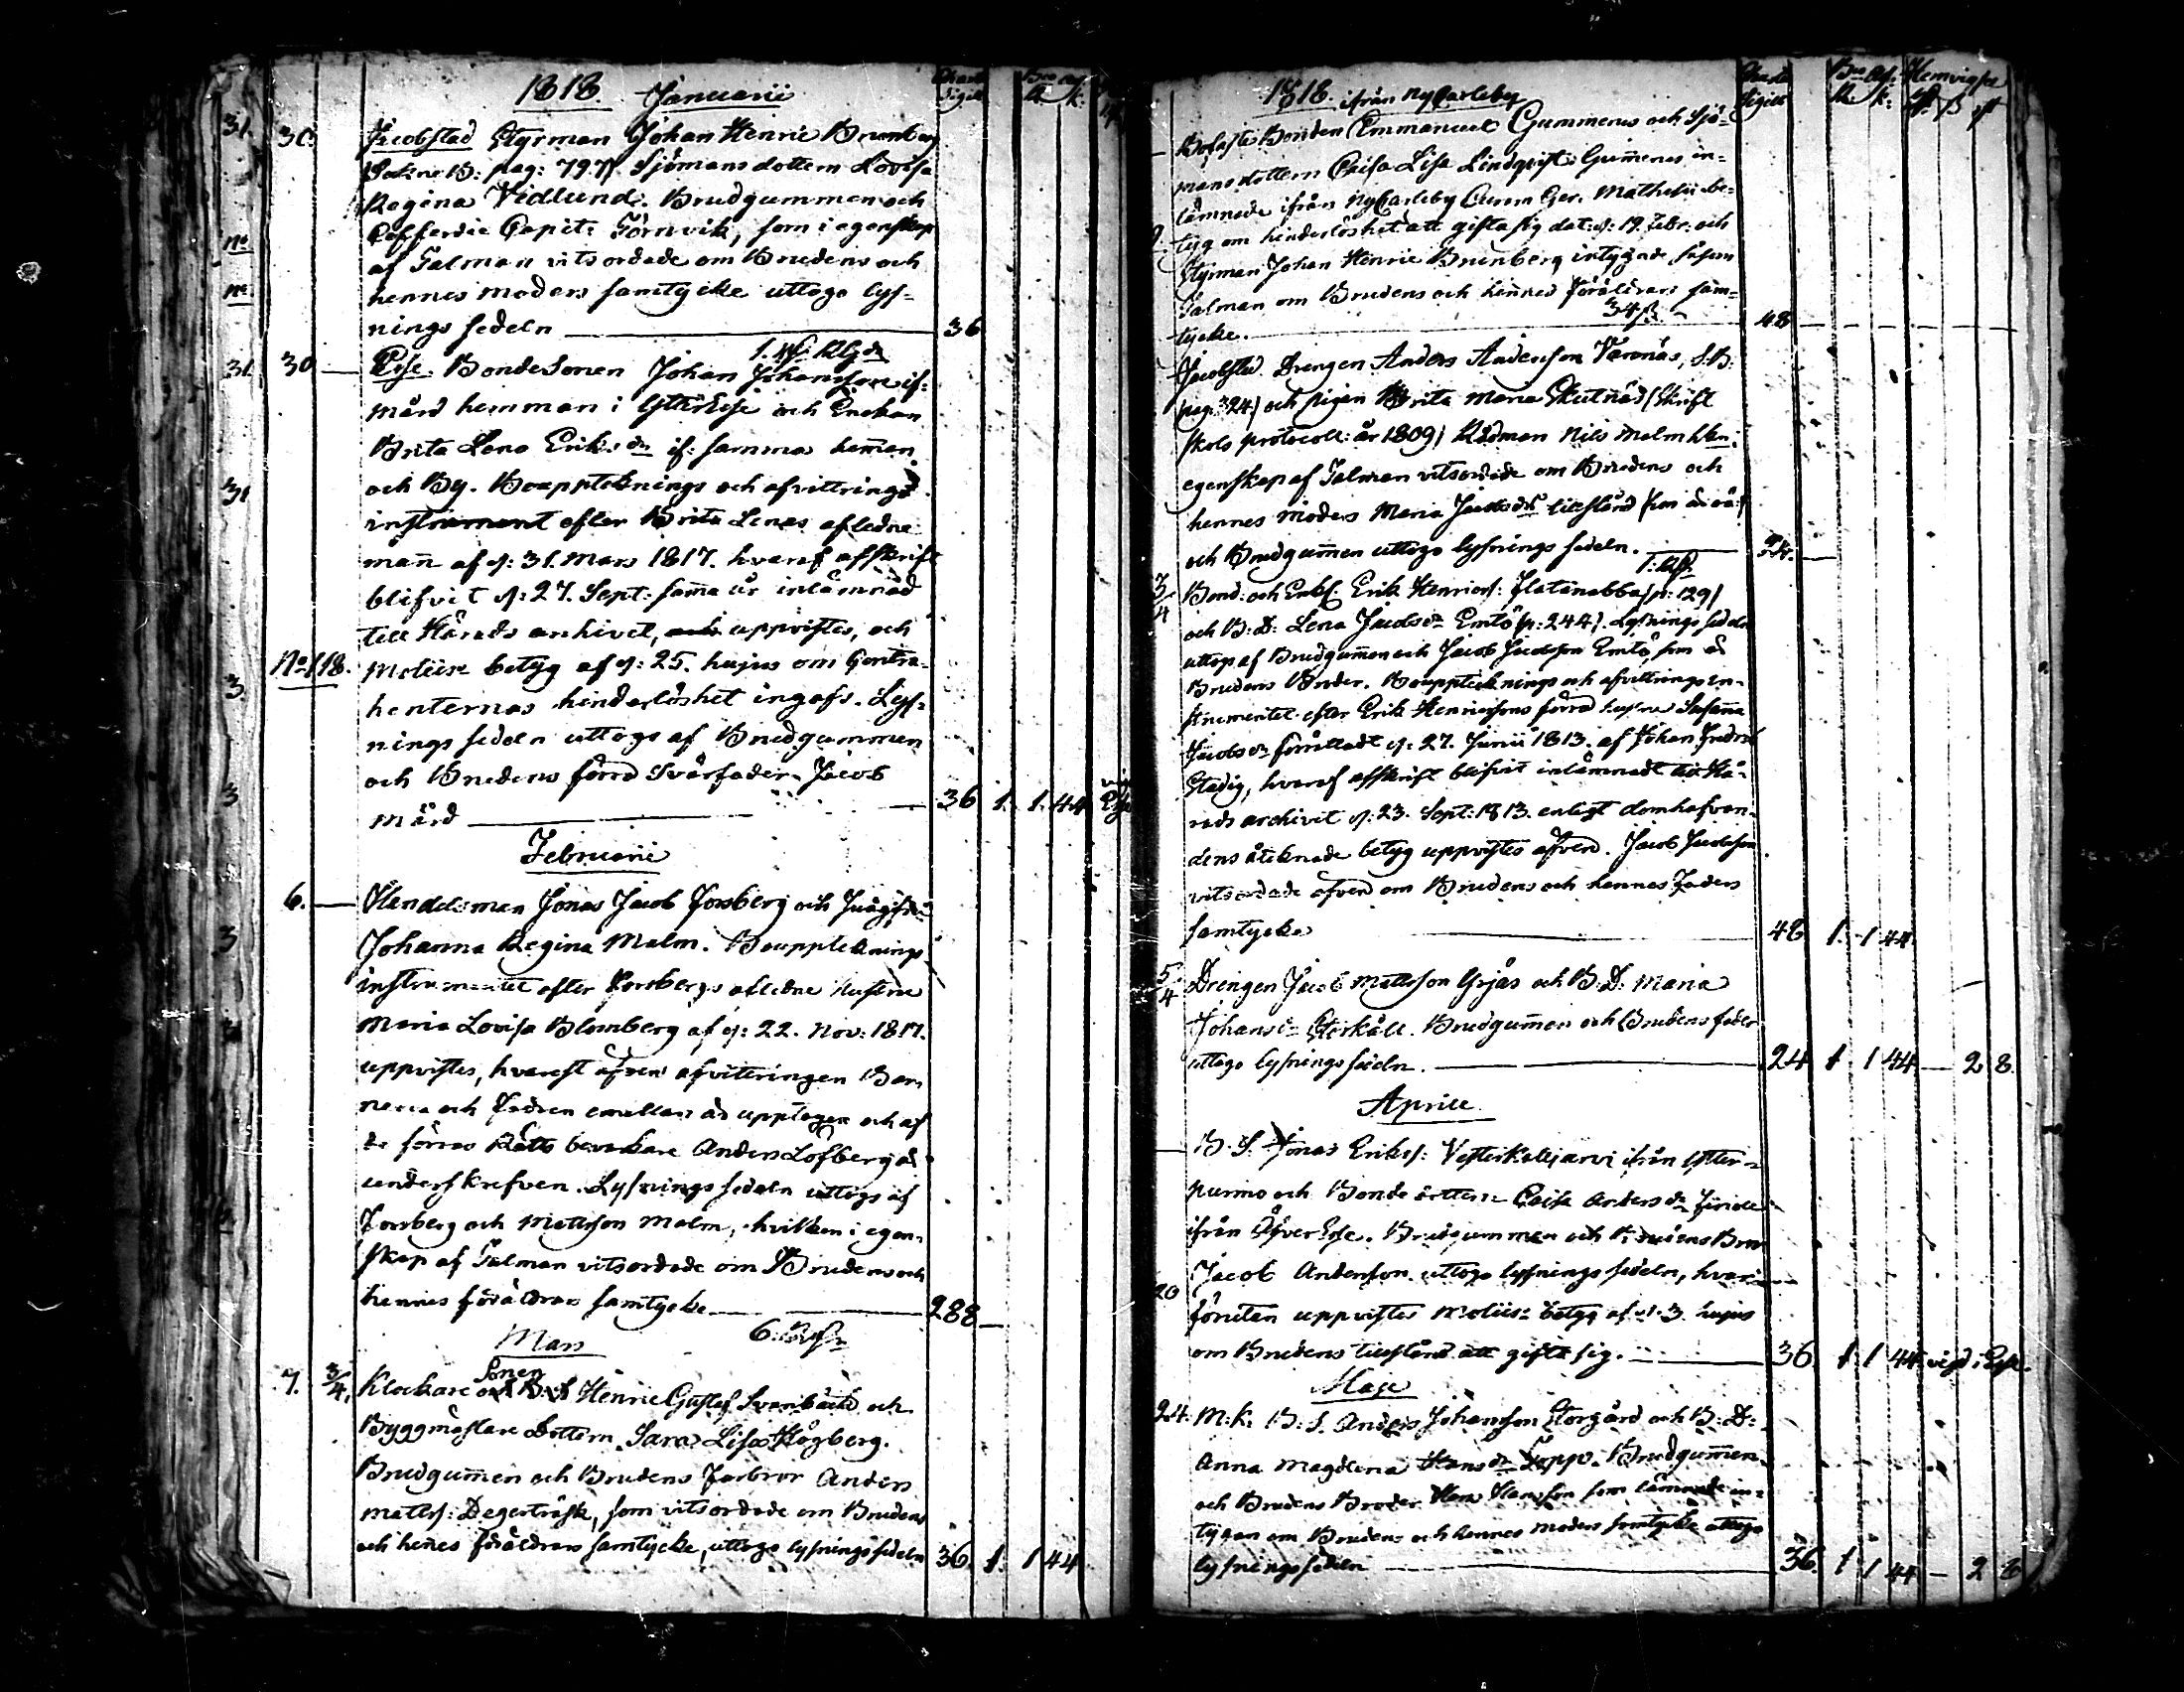 1818. Januarii
30. Jacobstad Styrman Johan Henric Brunberg
pag: 797. Sjömansdottern Lovisa
Regina Vidlund. Brudgummen och
Cofferdie Capit: Törnvik, som i egenskap
af Talman vitsordade om Brudens och
hennes moders samtycke uttogo lys-
nings sedeln 36
30 Esse. Bondesonen Johan Johansson if:
mård hemman i YtterEsse och Enckan
Brita Lena Eriksdr if: samma hemman
och By. Bouppteknings och afvittrings
instrument efter Brita Lenas afledne
man af d: 31. Mars 1817. hvaraf afskrift
blifvit d: 27. Sept: samma år inlämnad
till Härads arkivet, uppvistes, och
No 118. betyg af d: 25. hujus om Contra-
henternas hinderlöshet ingafs. Lys-
nings sedeln uttogs af Brudgummen
och Brudens förra Svärfader Jacob
Mård 36 1. 1. 44
Februarii
6. Handelsman Jonas Jacob Forsberg och
Johanna Regina Malm. Bouppteknings
instrumentet efter Forsbergs afledne Hustru
Maria Lovisa Blomberg af d: 22. Nov: 1817.
uppvistes, hvarest äfven afvittringen Bar-
nen och Fadren emellan är upptagen och af
de förras Rätts bevakare Anders Löfberg är
underskrefven. Lysnings sedeln uttogs af
Forsberg och Mattsson Malm, hvilken i egen-
skap af Talman vitsordade om Brudens och
hennes föräldrars samtycke 288
Mars
7. 3/4. Klockare Sonen Henric Gustaf Svanbäck och
Byggmästare Dottern Sara Lisa Högberg.
Brudgummen och Brudens Farbror Anders
Matts: Degerträsk, som vitsordade om Brudens
och hennes föräldrars samtycke, uttogo lysnings sedeln 36. 1. 1 44
1818. ifrån NyCarleby
Bofaste Bonden Emmanuel Gummerus och Sjö-
mansdottern Caisa Lisa Lindqvist. Gummerus in-
lämnade ifrån NyCarleby be-
tyg om hinderlöshet att gifta sig dat: d: 19. Febr: och
Styrman Johan Henric Brunberg intygade såsom
Talman om Brudens och hennes föräldrars sam-
tycke. 48
Jacobstad. Drengen Anders Andersson Varnäs, S.B.
pag: 324) och pigan Brita Maria Skutnäs (Skrift
skols protocoll: år 1809) Rådman Nils Malm
egenskap af Talman vitsordade om Brudens och
hennes moders Maria Jacobsdr tillstånd
och Brudgummen uttogo lysnings sedeln. 24.
3/4 Bond: och Enkl: Erik Henrics: Flatanabba (p: 129)
och B: D: Lena Jacobsdr Emtö (p: 244). Lysnings sedeln
uttogs af Brudgummen och Jacob Jacobsson Emtö, som är
Brudens Broder. Bouppteknings och afvittrings in-
strumentet efter Erik Henricssons förra hustru Susanna
Jacobsdr förrättadt d: 27. Junii 1813. af Johan Fredric
Stadig, hvaraf afskrift blifvit inlämnadt till Hä-
rads archivet d: 23. Sept: 1813. enligt domhafvan-
dens åteknade betyg uppvistes äfven. Jacob Jacobsson
vitsordade äfven om Brudens och hennes Faders
samtycke 48 1. 1 44
5/4 Drengen Jacob Mattsson Grjäs och B: D: Maria
Johansdr Storkåll. Brudgummen och Brudens fader
uttogo lysnings sedeln. 24 1 1 44 — 2 8.
Aprill
B. S. Jonas Eriks: Vesterkalljarvi ifrån Ytter-
purmo och Bonde dottern Caisa Andersdr
ifrån ÖfverEsse. Brudgummen och Brudens Bror
Jacob Andersson uttogo lysnings sedeln, hvar-
förutan uppvistes betyg af d. 3. hujus
om Brudens tillstånd att gifta sig. 36 1 1 44 vigd i Esse.
Maje
24. M: K: B: S. Anders Johansson Storgård och B: D:
Anna Magdlena Hansdr Lepp. Brudgummen
och Brudens Broder Hans Hansson som lämnade in-
tygan om Brudens och hennes moders samtycke uttogo
lysnings sedeln 36. 1 1 44 — 2 8